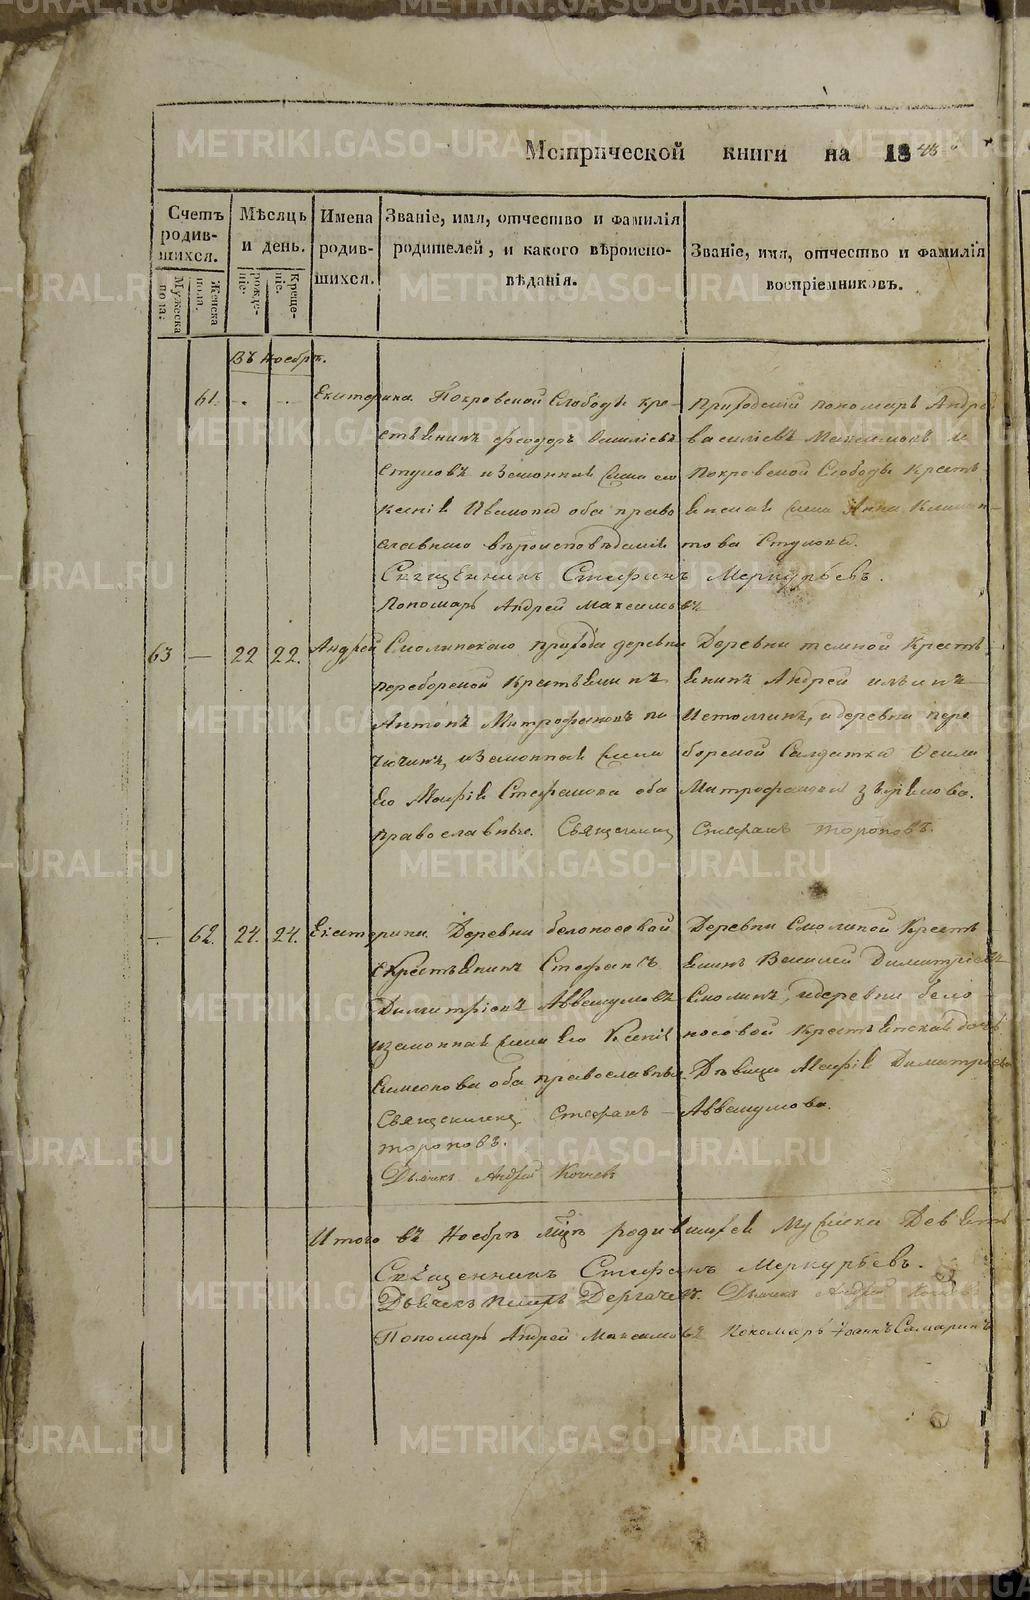 Метрической книги на 1846
Счетъ родив-шихся.
Мужеска пола.
Женска пола.
Мѣсяцъ и день.
рожде-ніе.
Креще-ніе.
Имена родив-шихся.
Званіе, имя, отчество и фамилія
родителей, и какого вѣроиспо-
вѣданія.
Званіе, имя, отчество и фамилія
воспріемниковъ.
Въ Ноябрѣ.
61. Екатерина
Покровской Слободы кре-
стьянинъ Феодоръ Василіевъ
Стуловъ и законная жена его
Ксенія Иванова оба право
славнаго вѣроисповѣданія
Приходскій пономарь Андрей
Василіевъ Максимовъ и
Покровской Слободы крестъ
янская жена Анна
това Стулова.
Священникъ Стефанъ Меркурьевъ.
Пономарь Андрей Максимовъ
63 — 22 22. Андрей
Смолинскаго прихода деревни
переборской Крестьянинъ
Антонъ Митрофановъ
законная жена
его Марфа Стефанова оба
православные. Священникъ Стефанъ Тороповъ.
Деревни темной Кресть
янинъ Андрей Ильинъ
Истоминъ, и деревни пере
борской Салдатка
Митрофанова
— 62. 24. 24. Екатерина
Деревни белоносовой
Крестьянинъ Стефанъ
Димитріевъ Аввакумовъ
и законная жена его Ксенія
Симеонова оба православные.
Священникъ Стефанъ
Тороповъ.
Дьячекъ Андрей
Деревни Смолиной Кресть
янинъ Василей Димитріевъ
Смолинъ, и деревни бело
носовой Крестьянская дочь
Дѣвица Марфа Димитріева
Аввакумова.
Итого въ Ноябрѣ мцѣ родившихся Мужеска Девять
Священникъ Стефанъ Меркурьевъ.
Дьячекъ Петръ Дергачевъ. Дьячекъ Андрей
Пономарь Андрей Максимовъ Пономарь Іоаннъ Самаринъ
METRIKI.GASO-URAL.RU